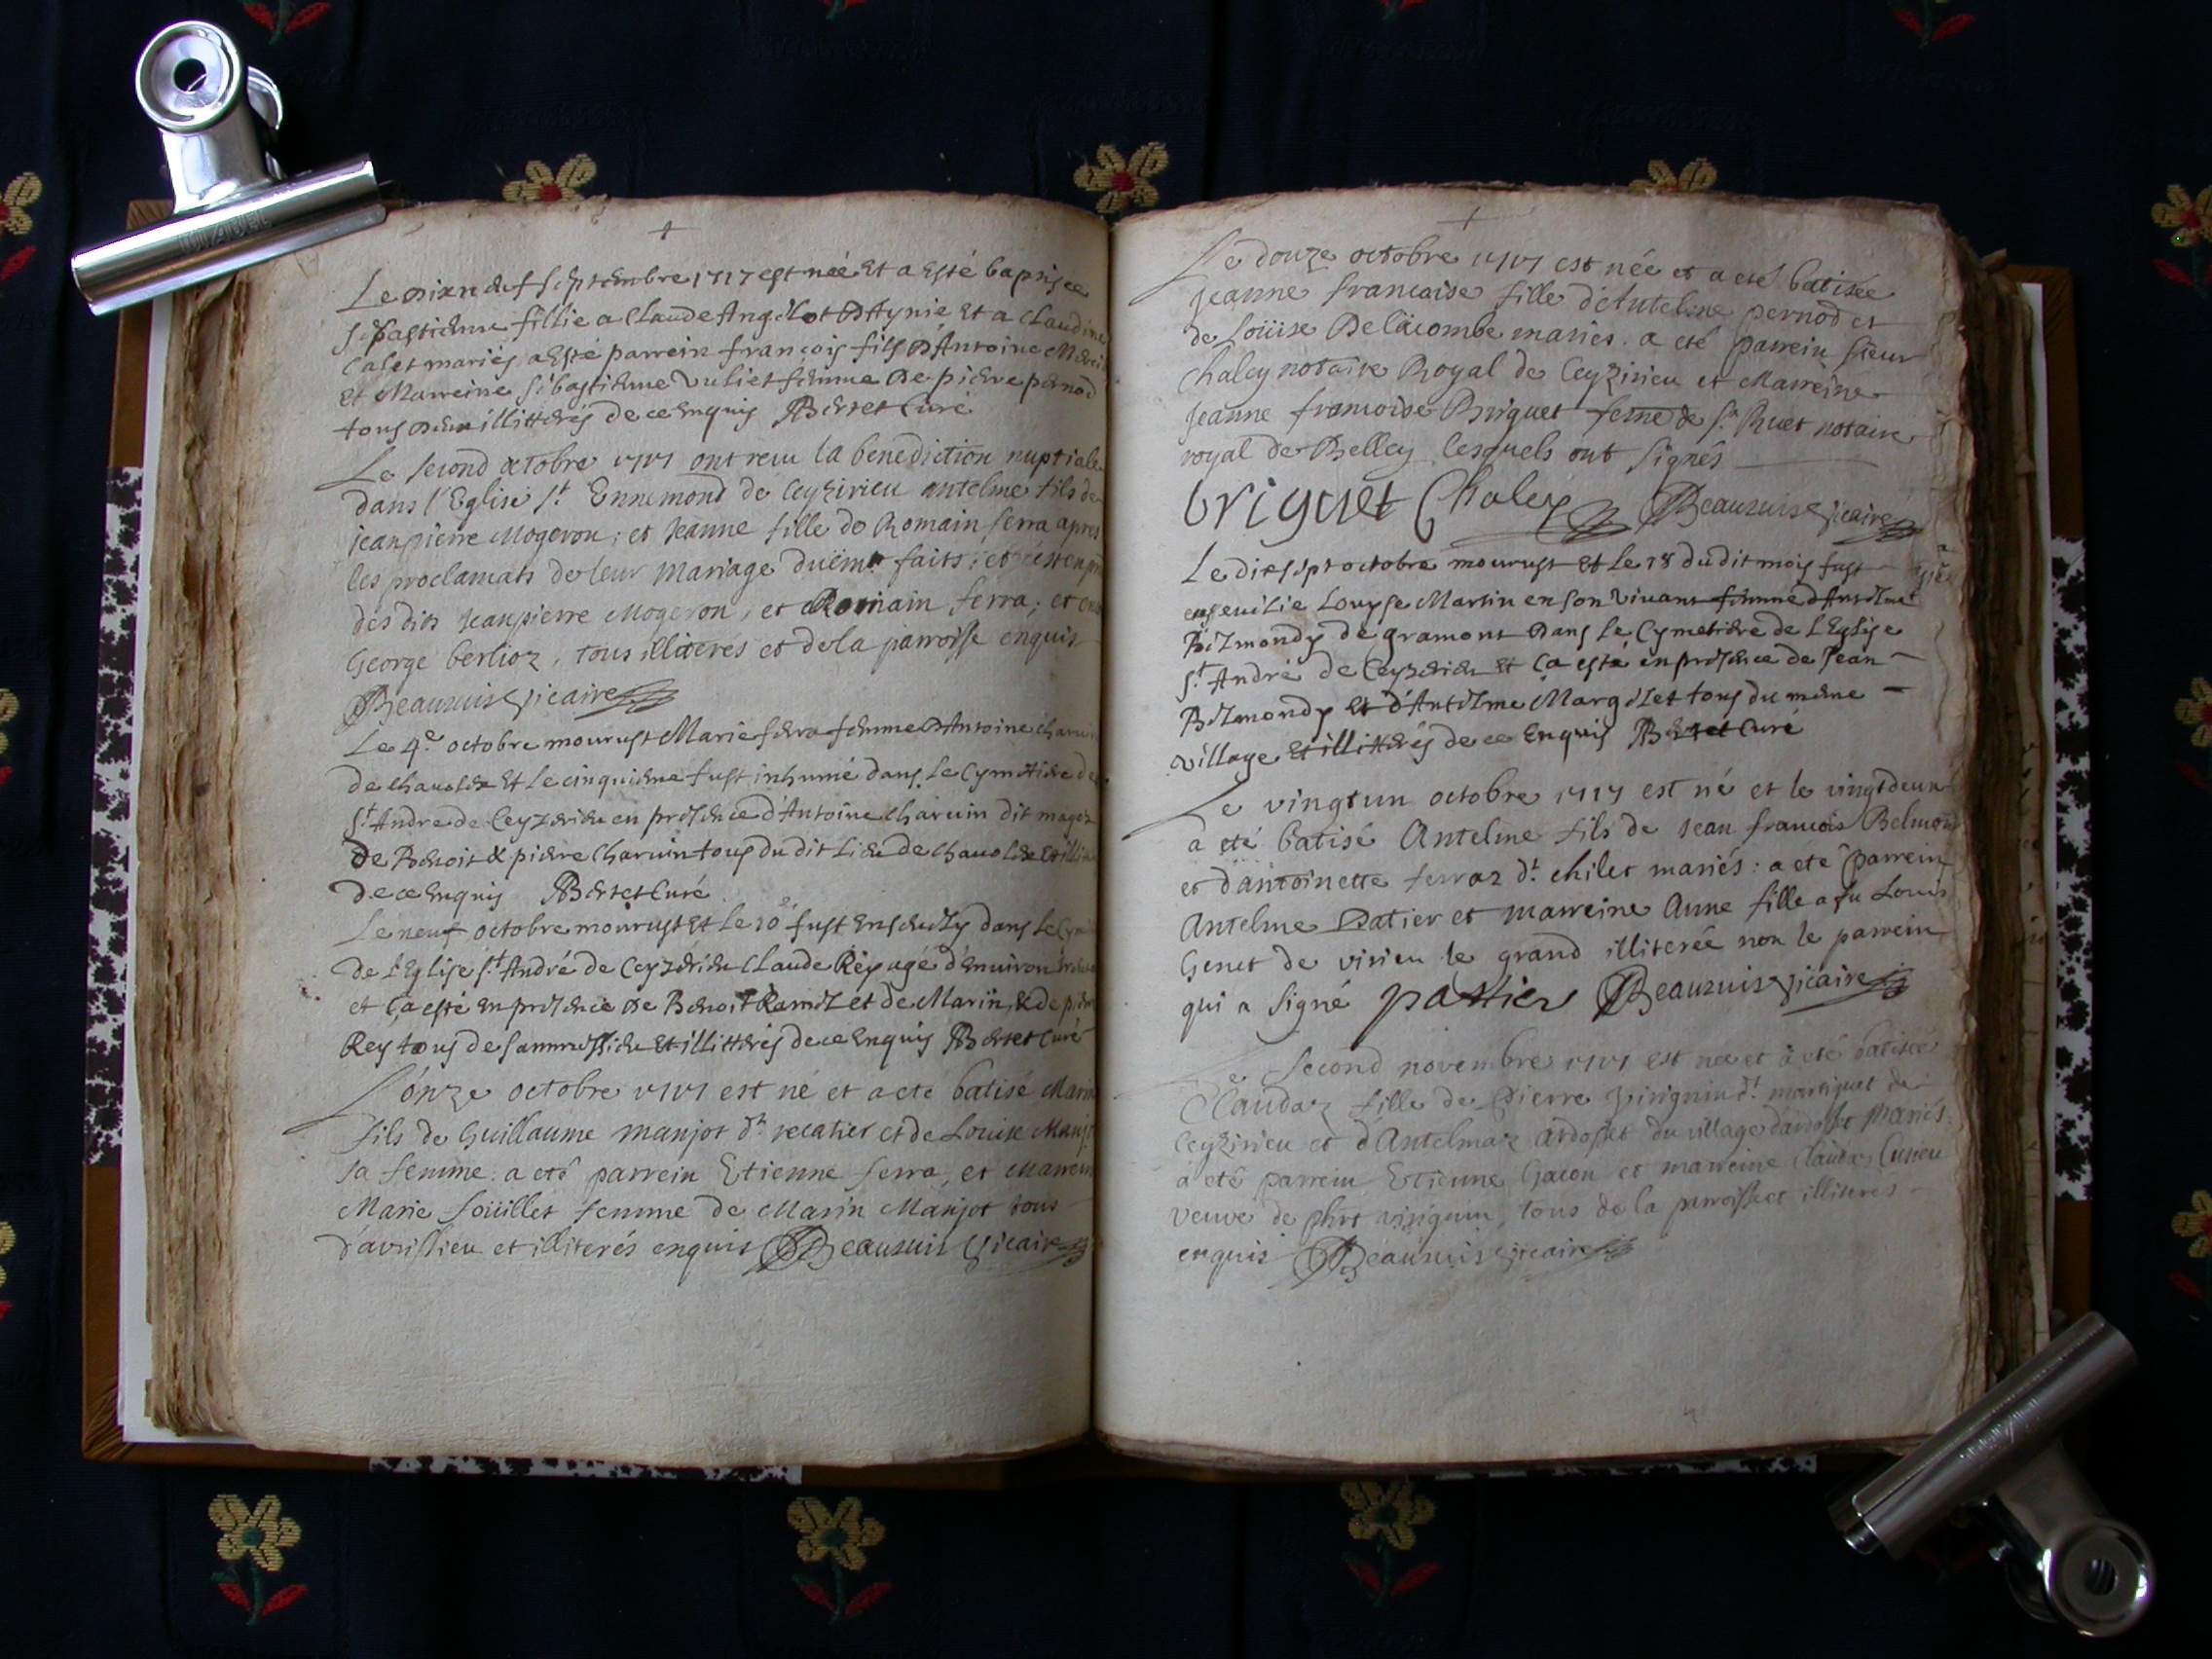 Le dixneuf septembre 1717 est née Et a Esté baptisee
Sebastienne fillie a Claude Angelot D'Aynie Et a Claudine
Calet mariés a Esté parrein françois fils D'Antoine
Et Marreine Sebastienne Vuliet femme De pierre pernod
tous deux illitterés de ce Enquis Bertet Curé
Le second octobre 1717 ont recu la benediction nuptiale
dans l'Eglise St. Ennemond de Ceyzirieu antelme fils de
jeanpierre Mogeron; et Jeanne fille de Romain serra apres
les proclamats de leur mariage duëmt faits; et
des dits Jeanpierre Mogeron, et Romain serra; et
George berlioz, tous illiterés et de la parroisse enquis
Beauzuis Vicaire
Le 4e octobre mourust Marie serra femme D'Antoine charuin
de chauolex Et le cinquieme fust inhumé dans le Cymetiere de
St. Andre de Ceyzerieu en presence d'Antoine Charuin dit
De Benoit & pierre Charuin tous du dit Lieu de chauolex
de ce Enquis Bertet Curé
Le neuf octobre mourust Et le 10e fust Enseuely dans le
de l'Eglise St. André de Ceyzerieu Claude d'Enuiron
et ça esté en presence De Benoit Ramel et de Marin, & de
Rey tous de Et illitterés de ce Enquis Bertet Curé
L'onze octobre 1717 est né et a eté batisé Marin
fils de Guillaume manjot dt. recatier et de Louise Manjot
sa femme: a eté parrein Etienne serra, et Marreine
Marie soüillet femme de Marin Manjot tous
d'avrissieu et illiterés enquis Beauzuis Vicaire
Le douze octobre 1717 est née et a eté batisée
Jeanne francaise fille d'Antelme pernod et
de Loüise Delacombe mariés. a eté parrein sieur
Chaley notaire Royal de Ceyzirieu et Marreine
Jeanne francoise Briguet feme de Sr. Ruet notaire
royal de Belley lesquels ont signés
briguet Chaley Beauzuis Vicaire
Le diesept octobre mourust Et le 18 du dit mois fust
enseuilie Louyse Martin en son Viuant femme d'Antelme
Belmondy de gramont Dans le Cymetiere de L'Eglise
St. André de Ceyzerieu Et ça esté en presence de Jean
Belmondy Et d'Antelme Margelet tous du meme
village Et illitterés de ce Enquis Bertet Curé
Le vingtun octobre 1717 est né et le vingtdeux
a eté batisé Antelme fils de Jean francois Belmond
et d'antoinette ferraz dt. chilet mariés: a eté parrein
Antelme Patier et marreine Anne fille a fu Louis
Genet de virieu le grand illiterée non le parrein
qui a signé pattier Beauzuis Vicaire
Le second novembre 1717 est née et a eté batisée
Claudaz fille de Pierre Virignin dt. martiguet de
Ceyzirieu et d'Antelmaz ardosset du village d'ardosset mariés.
a eté parrein Etienne Gacon et marreine Claudaz Cusieu
veuve de virignin, tous de la parroisse et illiterés
enquis Beauzuis Vicaire